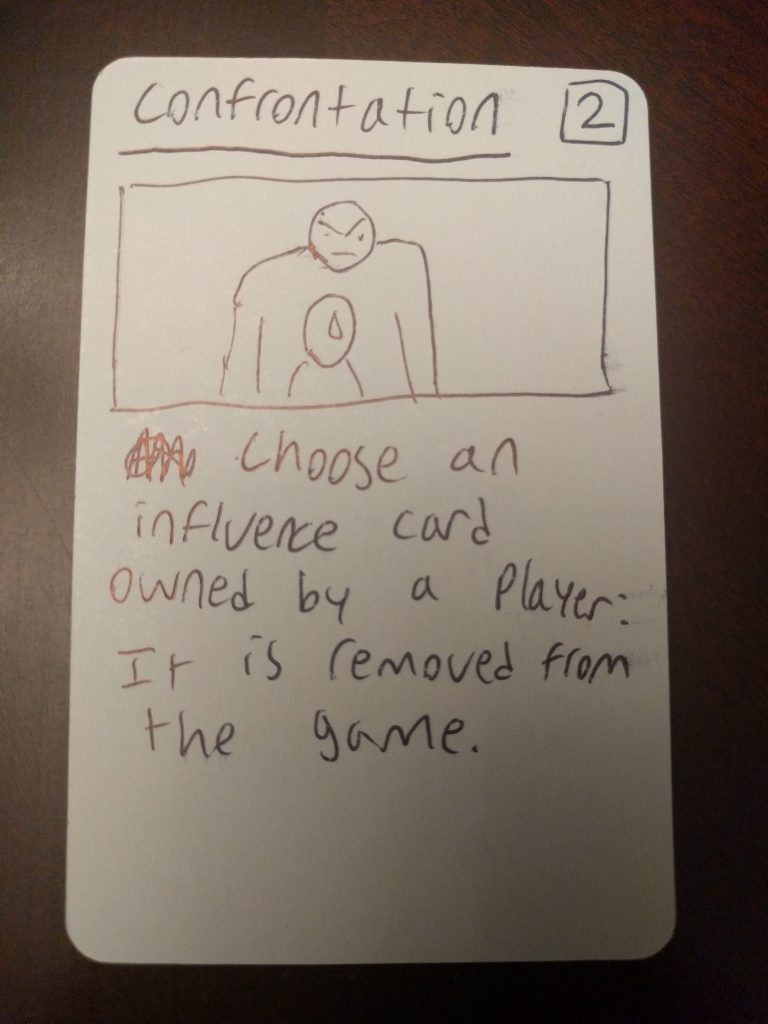 Confrontation 2
Choose an
influence card
owned by a player:
It is removed from
the game.